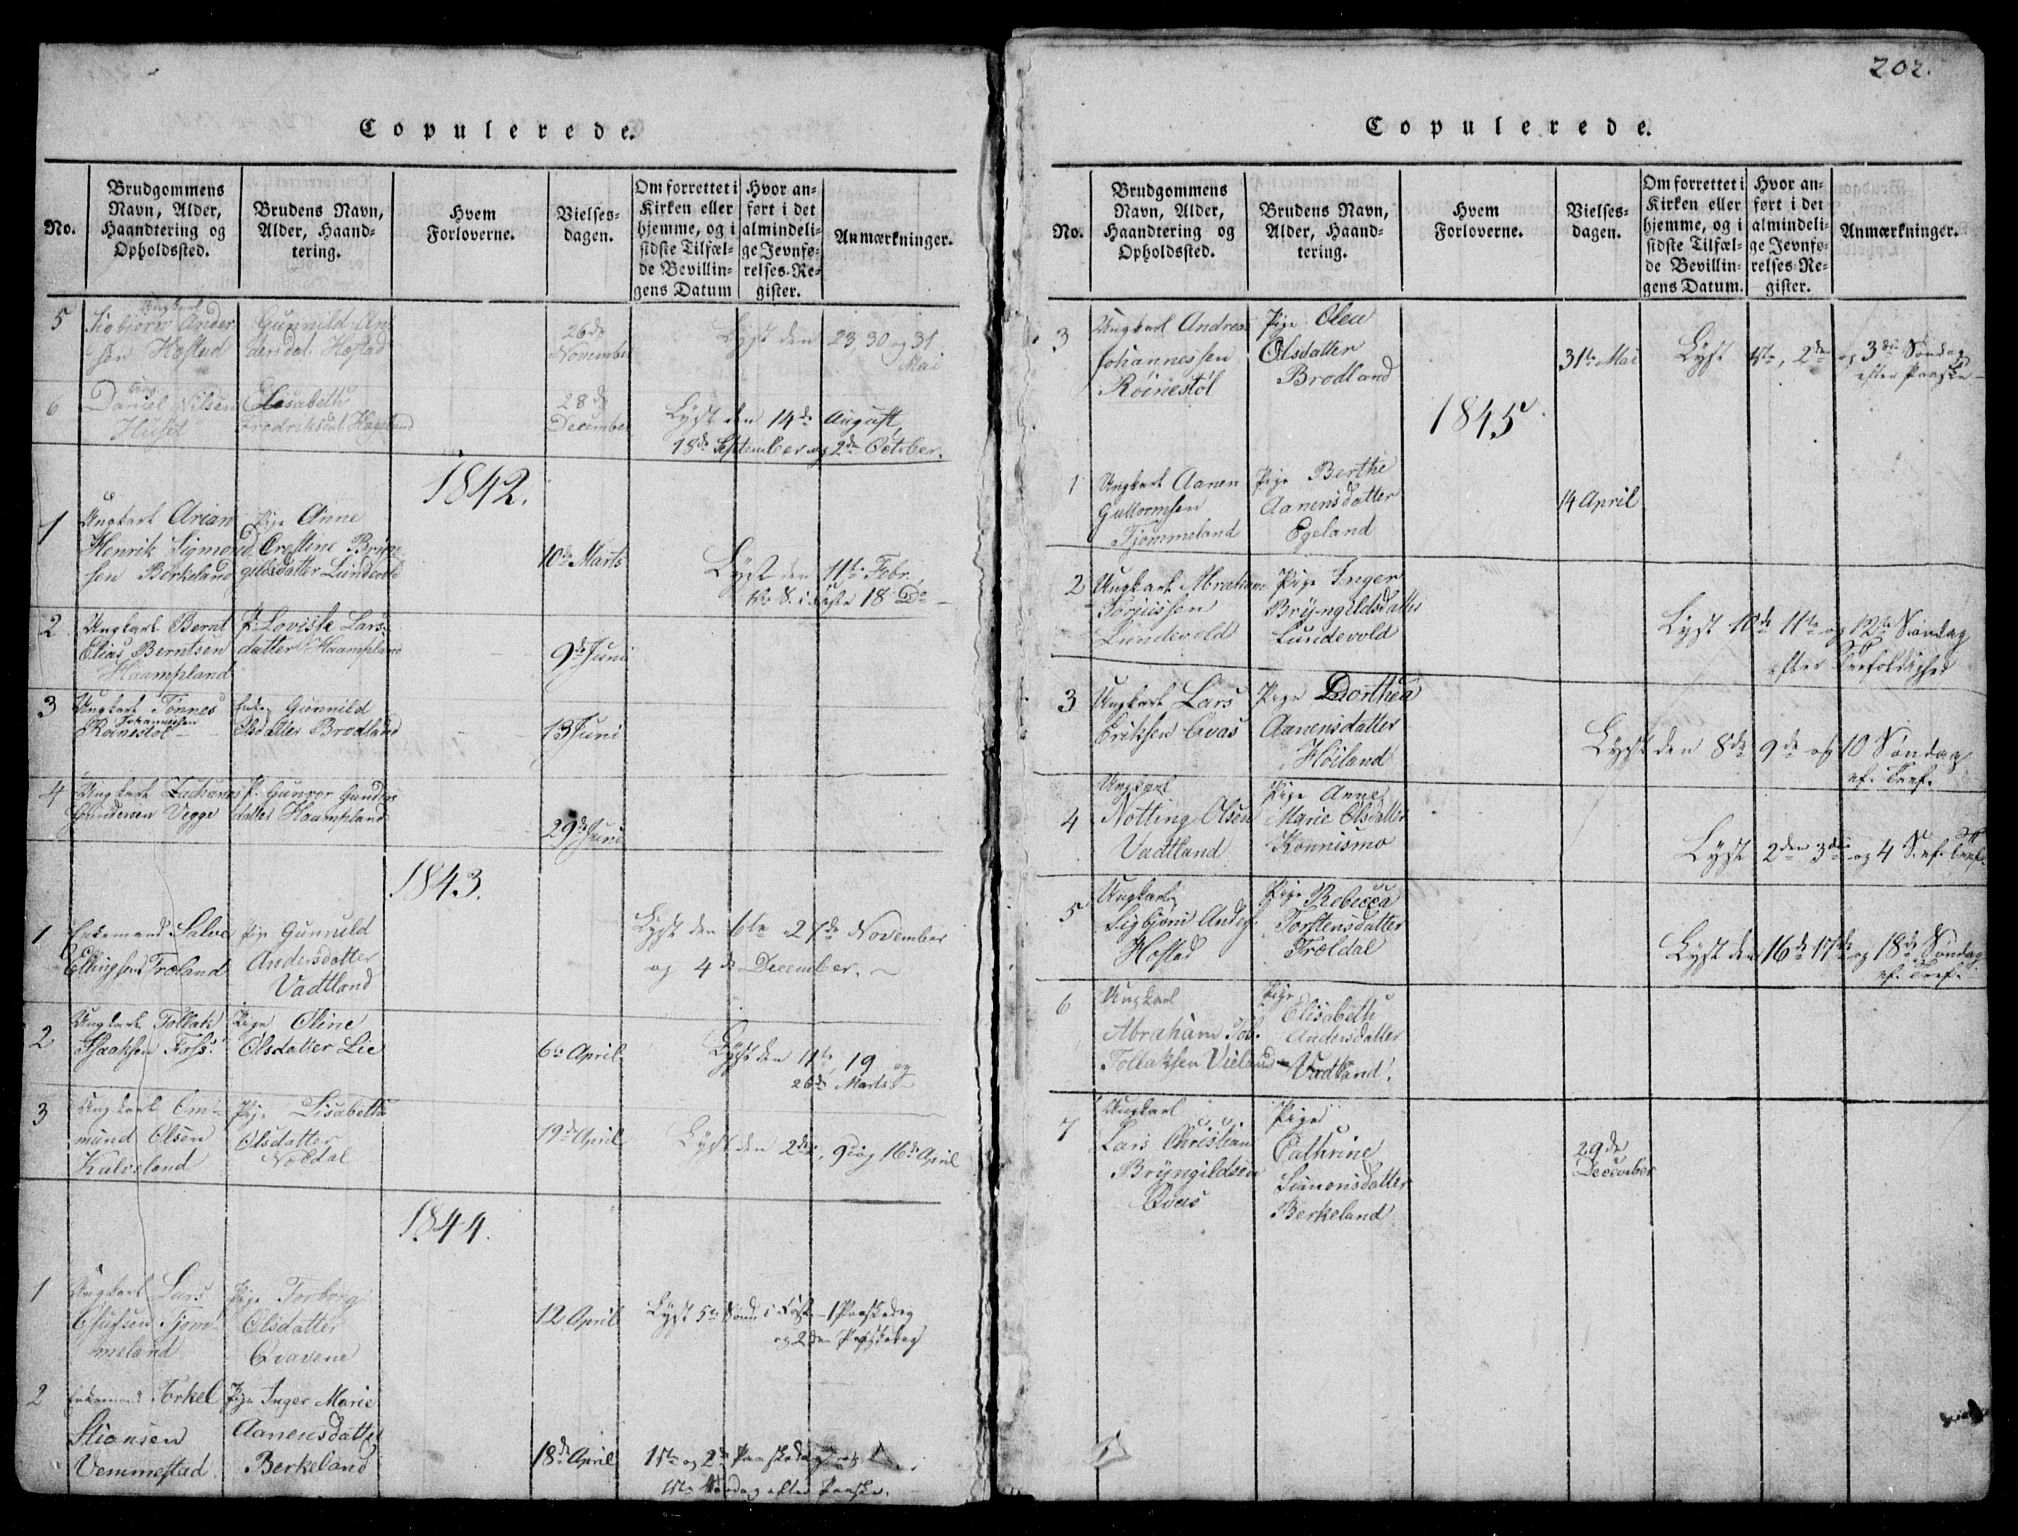 Copulerede.
No.
Brudgommens Navn, Alder, Haandtering og Opholdssted.
Brudens Navn, Alder, Haandtering.
Hvem Forloverne.
Vielsesdagen.
Om forrettet i Kirken eller hjemme, og i sidste Tilfælde Bevillingens Datum
Hvor anført i det almindelige Jevnførelses-Register.
Anmærkninger.
5
Ungkarl
Sigbjørn Anders
sen Hostad
Gunnild An
dersdat. Hostad
26de
November
Lyst den 23 30 og 31
Mai
6
Daniel Nilsen
Huset
Elisabeth
Fredriksdat.
28de
December
Lyst den 14de August,
18de September og 2den October.
1842.
1
Ungkarl Arian
Henrik Sigmond
sen Birkeland
Pige Anne
Crestine Brÿn
gildsdatter Lundevold
10de Marts
Lyst den 11te Febr.
18 Do
2
Ungkarl Bernt
Elias Berntsen
Haampland
P. Lovise Lars
datter Haampland
9de Juni
3
Ungkarl Tønnes
Johannesen
Røinestøl
Enke Gunnild
Olsdatter Brodland
13 Juni
4
Ungkarl Zacharias
Gundersen Vegge
P. Gunvor Gunders
datter Haampland
29de Juni
1843.
1
Enkemand Salve
Ellingsen Træland
Pige Gunnild
Andersdatter
Vadtland
Lyst den 6te 27de November
og 4de December.
2
Ungkarl Tollak
Isaaksen Foss.
Pige Oline
Olsdatter Lie
6te April
Lyst den 11te, 19 og
26de Marts
3
Ungkarl Om
mund Olsen
Kalveland
Pige Lisabeth
Olsdatter
Nordal
19de April
Lyst den 2den, 9 og 16de April
1844.
1
Ungkarl Lars
Tjom
meland
Pige Torborg
Olsdatter
Qvavene
12 April
Lyst 5te Sønd. i Faste 1 Paaskedag
og 2den Paaskedag
2
Enkemand Torkel
Stiansen
Vemmestad
Pige Inger Marie
Aanensdatter
Berkeland
18de April
1ste og 2de Paaskedag og
1ste Søndag efter Paaske.
202.
Copulerede.
No.
Brudgommens Navn, Alder, Haandtering og Opholdssted.
Brudens Navn, Alder, Haandtering.
Hvem Forloverne.
Vielsesdagen.
Om forrettet i Kirken eller hjemme, og i sidste Tilfælde Bevillingens Datum.
Hvor anført i det almindelige Jevnførelses-Register.
Anmærkninger.
3
Ungkarl Andreas
Johannessen
Røinestøl
Pige Olea
Olsdatter
Brodland
31te Mai
Lyst 1ste, 2den og 3die Søndag
efter Paaske
1845
1
Ungkarl Aanen
Guttormsen
Tjommeland
Pige Berthe
Aanensdatter
Egeland
14 April
2
Ungkarl Abraham
Torjussen
Lundevold
Pige Inger
Brÿngildsdatter
Lundevold
Lyst 10de 11te og 12te Søndag
efter Trefoldighed
3
Ungkarl Lars
Eriksen Qvas
Pige Dorthea
Aanensdatter
Høiland
Lyst den 8de 9de og 10 Søndag
ef. Tref.
4
Ungkarl
Notting Olsen
Vadtland
Pige Anne
Marie Olsdatter
Konnismo
Lyst 2den 3die og 4 S. ef. Tref.
5
Ungkarl
Sigbjørn Anders.
Hostad
Pige Rebecca
Torstensdatter
Trældal
Lyst den 16de 17de og 18de Søndag
ef. Tref.
6
Ungkarl
Abraham Tob.
Tollaksen Vieland
Pige
Elisabeth
Andersdatter
Vadtland.
7
Ungkarl
Lars Christian
Brÿngildsen
Qvas
Pige
Cathrine
Simonsdatter
Berkeland
29de
December